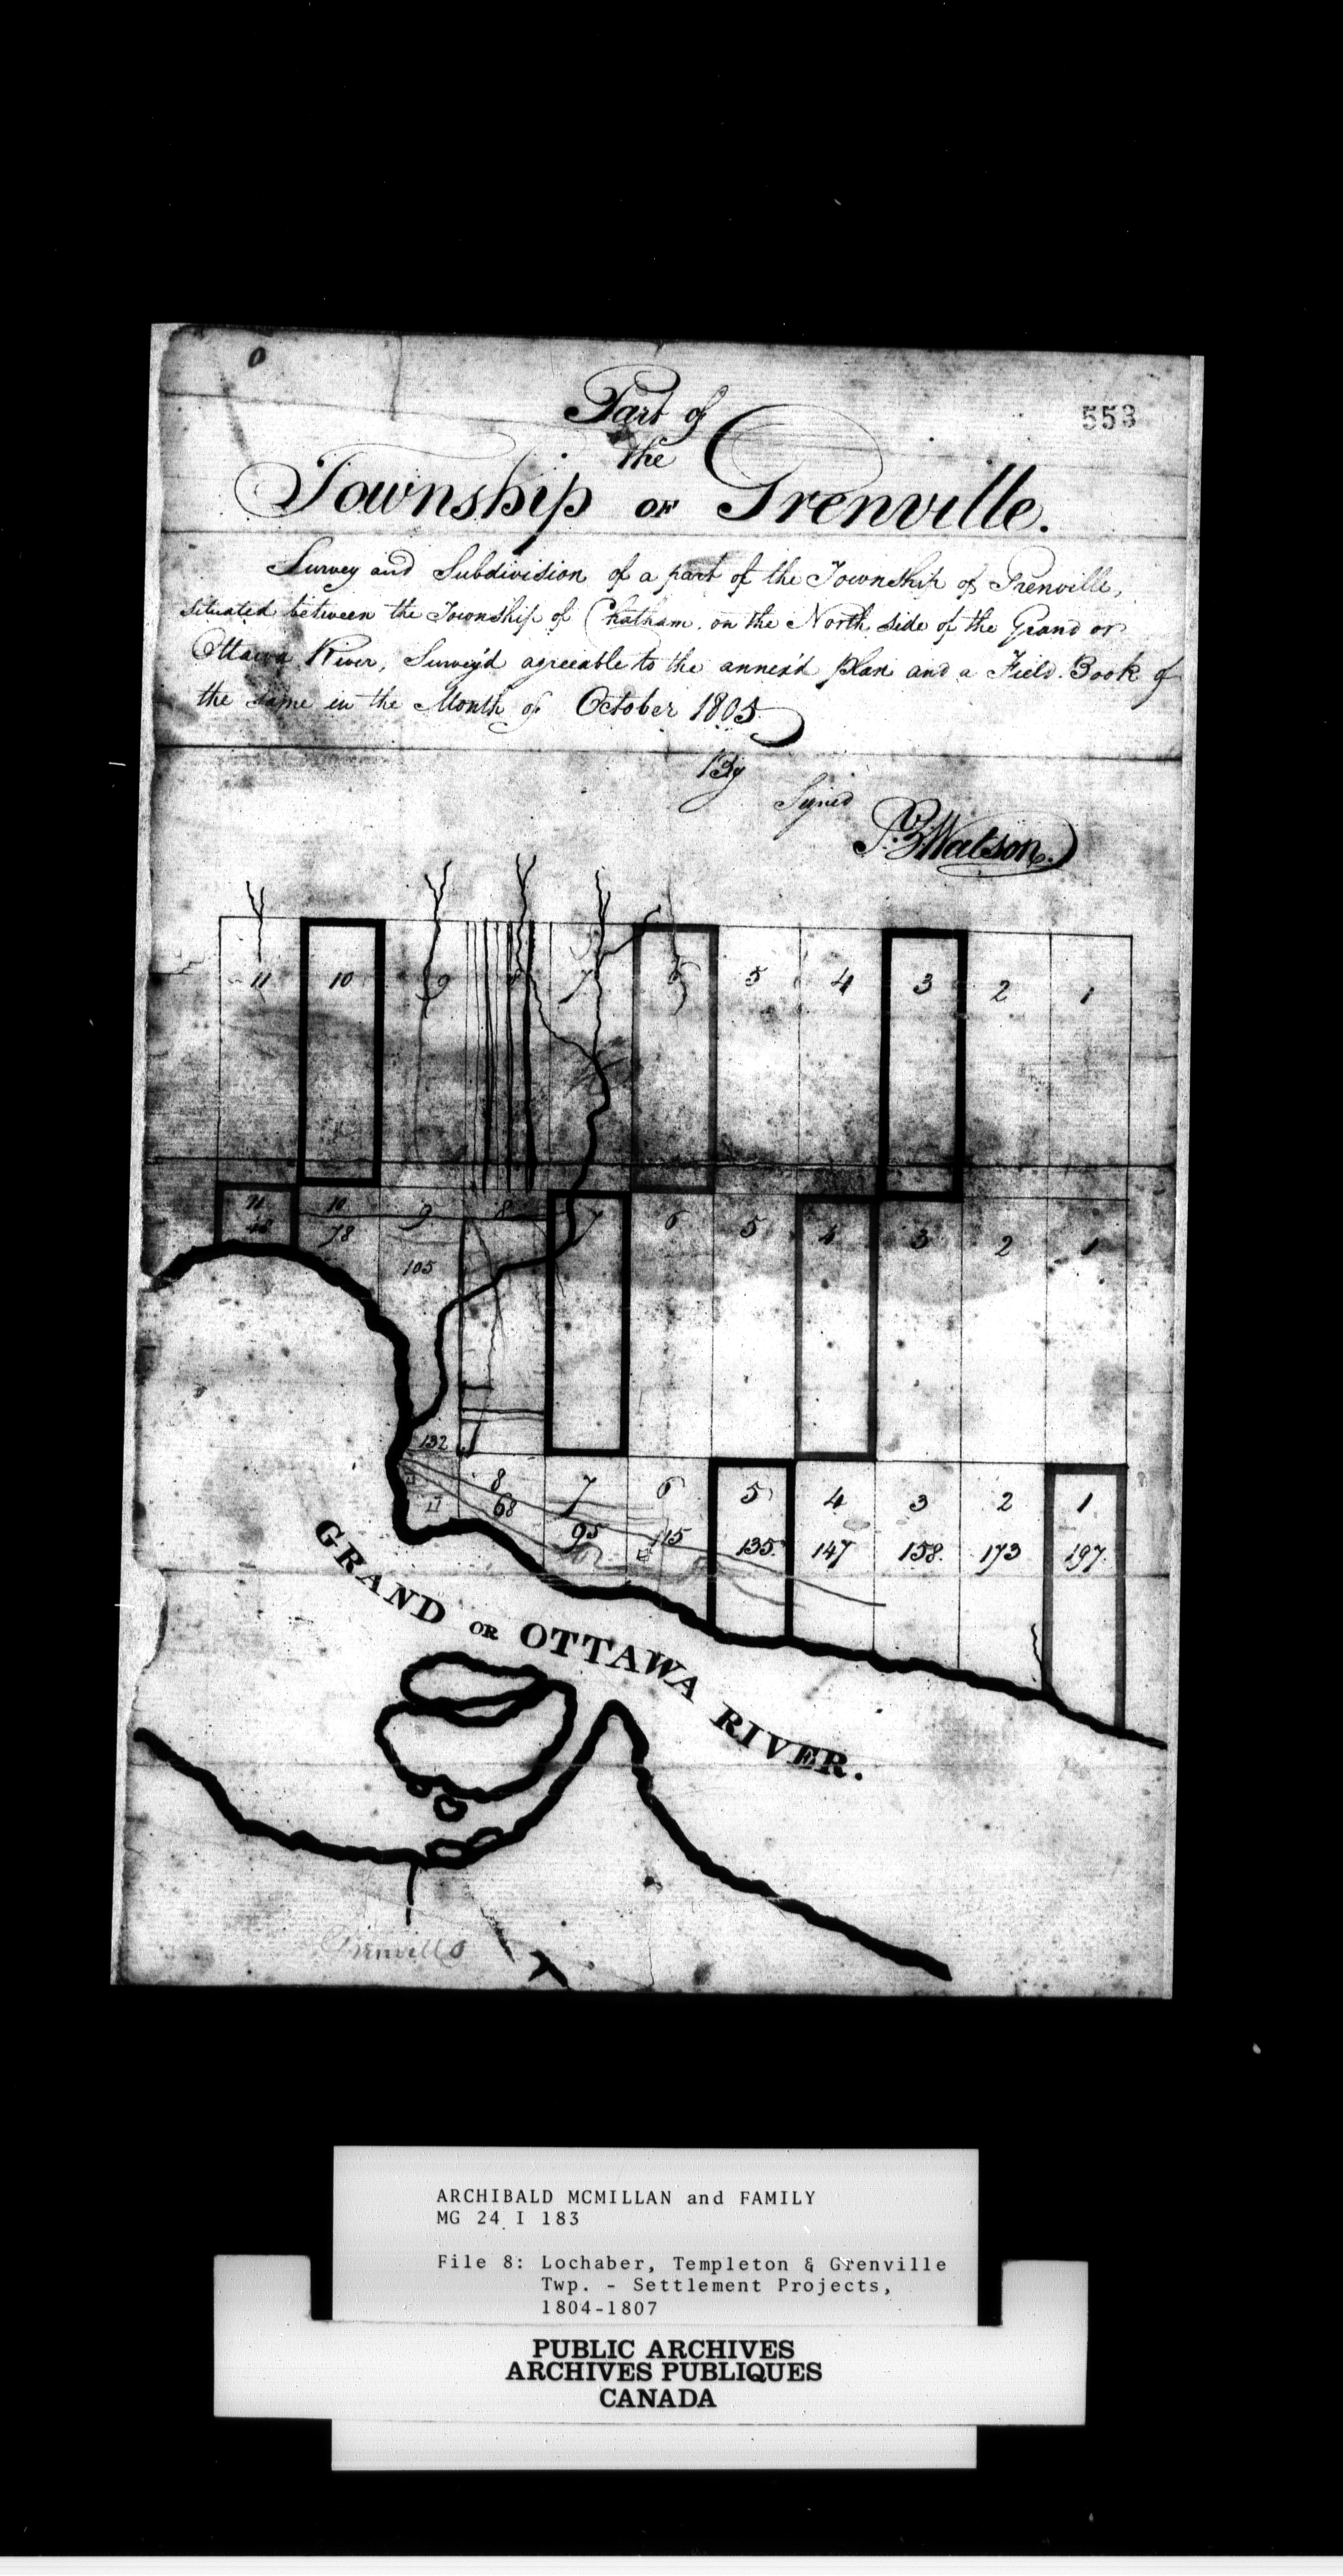 Part of
553
the
Township OF Grenville.
Survey and Subdivision of a part of the Township of Grenville,
situated between the Township of Chatham, on the North side of the Grand or
Ottawa River, Survey'd agreeable to the annex'd plan and a Field Book of
the same in the Month of October 1805
By
Signed
Watson
11 10 9 8 7 6 5 4 3 2 1
11 10 9 8 7 6 5 4 3 2 1
78
105
132
8 7 6 5 4 3 2 1
68 95 115 135 147 158 173 197
GRAND OR OTTAWA RIVER.
Grenville
ARCHIBALD MCMILLAN and FAMILY
MG 24 I 183
File 8: Lochaber, Templeton & Grenville
Twp. - Settlement Projects,
1804-1807
PUBLIC ARCHIVES
ARCHIVES PUBLIQUES
CANADA